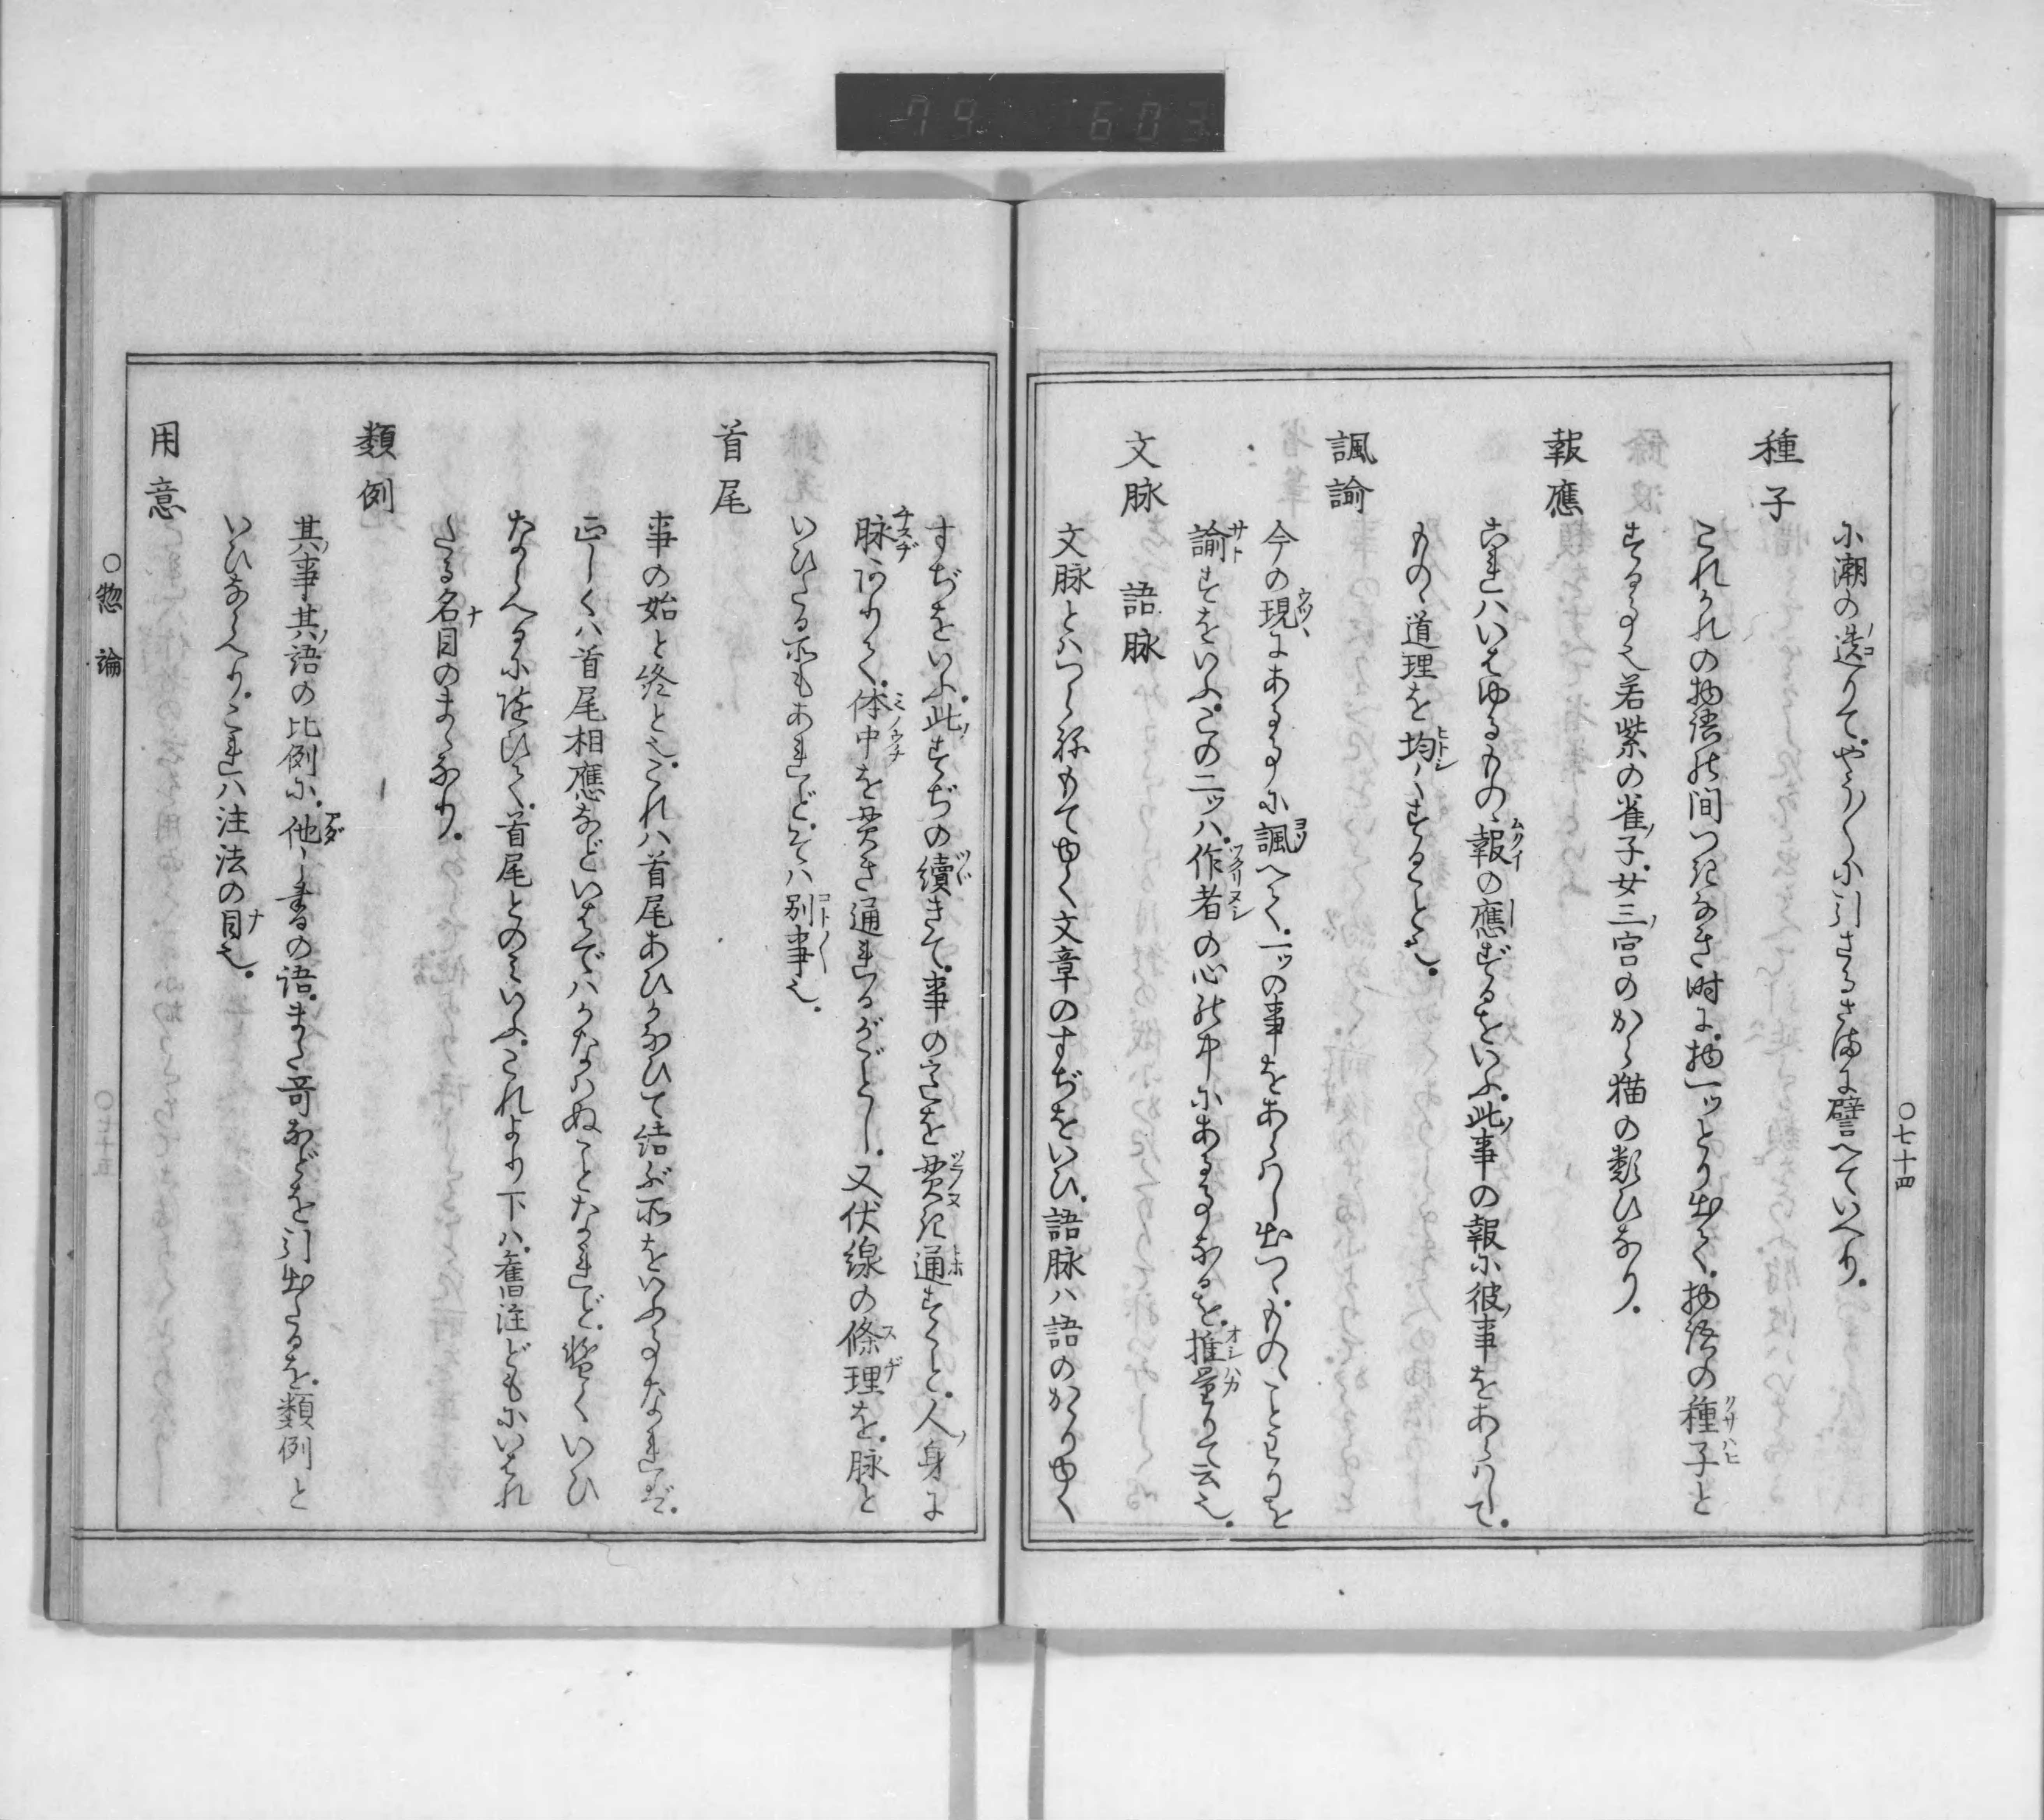 79 603
〇七十四
に潮の遺りて。やう〳〵に引さるさまに譬へていへり。
種子
これかれの物語の間つきなき時に。物一ッとり出て。物語の種子と
する事也若紫の雀子。女三宮のから猫の類ひなり。
報應
これハいはゆるものゝ報の應ずるをいふ。此事の報に彼事をあらハして。
ものゝ道理を均くすること也。
諷諭
今の現にある事に諷へて。一ッの事をあらハし出つゝ。ものゝことわりを
諭すをいふ。この二ッハ。作者の心の中にある事なるを。推量りて云也。
文脉 語脉
文脉とハつらねもてゆく文章のすぢをいひ。語脉ハ語のかゝりゆく
すぢをいふ。此すぢの續きて。事の意を貫き通すこと。人身に
脉ありて。体中を貫き通れるがごとし。又伏線の條理を。脉と
いひたる所もあれど。そハ別事也。
首尾
事の始と終と也。これハ首尾あひかなひて結ぶ所をいふ事なれバ。
正しくハ首尾相應などいはでハかなハぬことなれど。暫くいひ
なれへるに随ひて。首尾とのミいふ。これより下ハ。舊注どもにいはれ
たる名目のまゝなり。
類例
其事其語の比例に。他し書の語。また哥などを引出たるを。類例と
いひならへり。これハ注法の目也。
用意
〇惣論